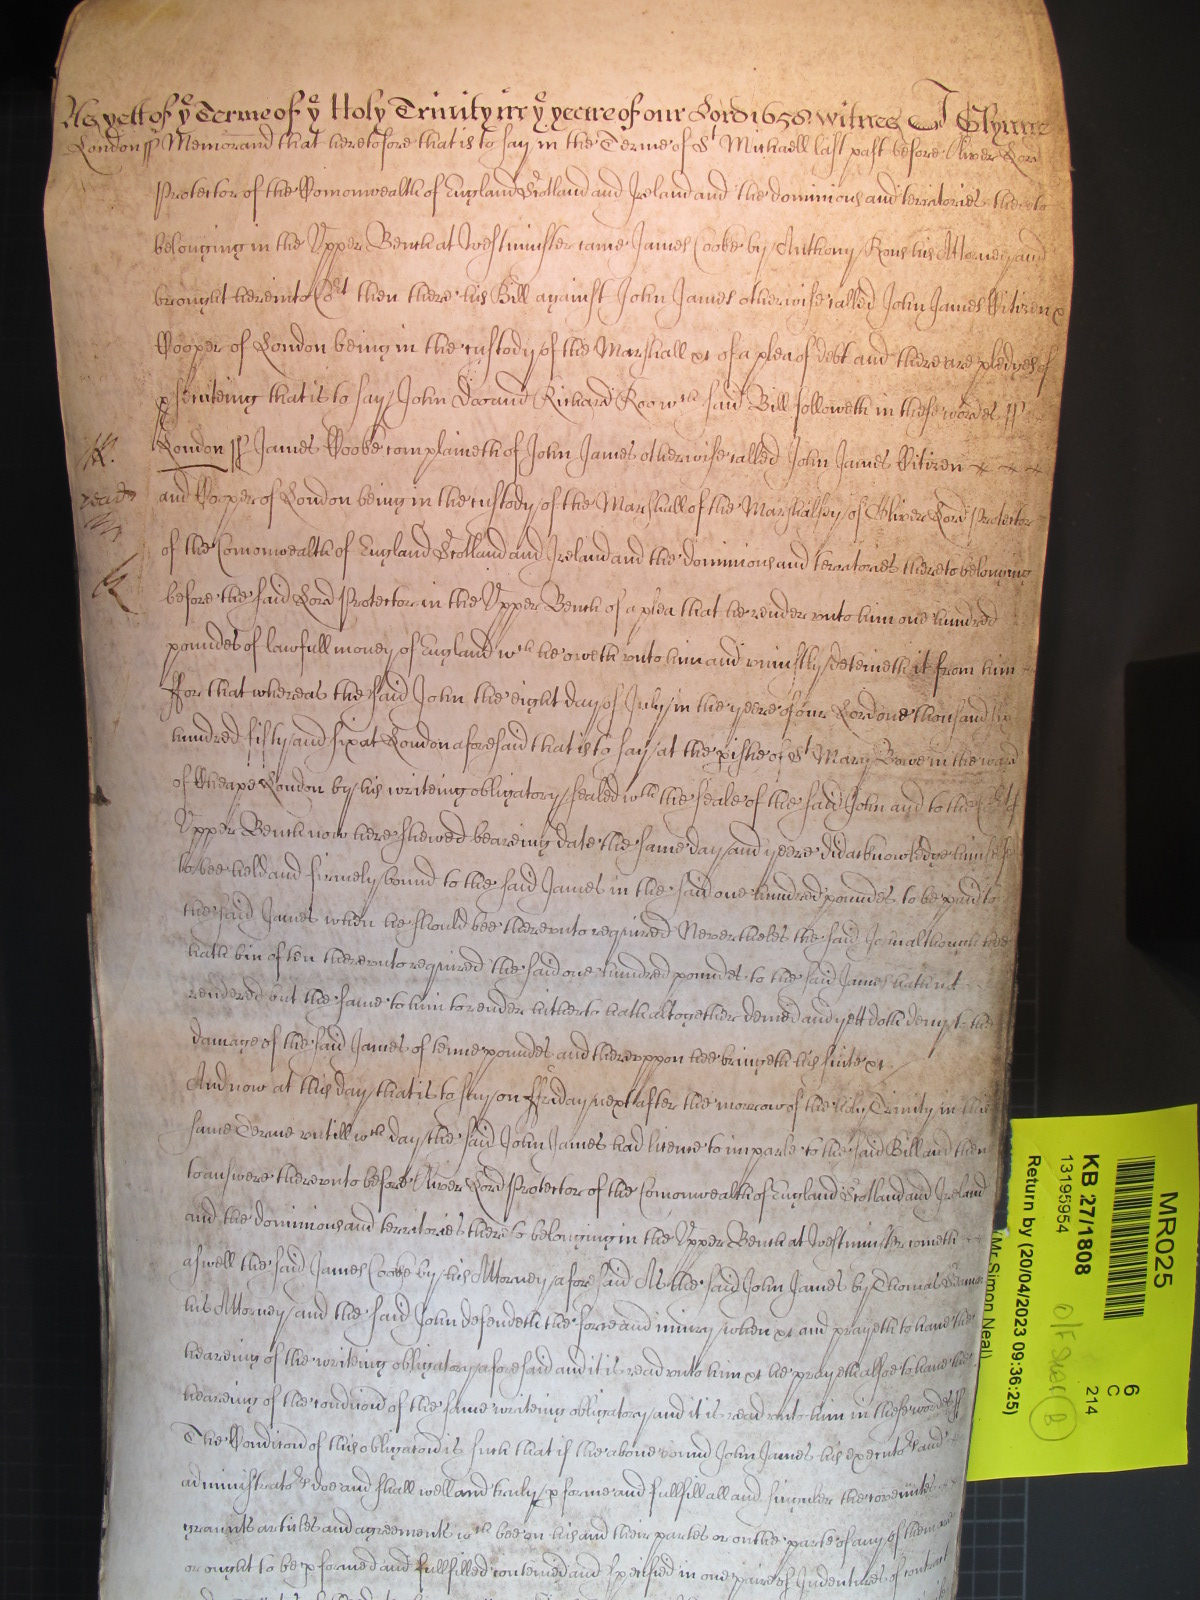 As yett of ye Terme of ye Holy Trinity in ye yeare of our Lord 1658 Witnes J Glynne
London ss Memorand that heretofore that is to say in the Terme of St Michaell last past before Oliver Lord
Protector of the Comonwealth of England Scotland and Ireland and the dominions and terratories thereto
belonging in the Upper Bench at Westminster came James Cooke by Anthony Rous his Attorney and
brought here into Cort then there his Bill against John James otherwise called John James Citizen &
Cooper of London being in the custody of the Marshall &c of a plea of debt and there are pledges of
psecuteing that is to say John Doo and Richard Roo wch said Bill followeth in these wordes ss
London ss James Cooke complaineth of John James otherwise called John James Citizen
and Cooper of London being in the custody of the Marshall of the Marshalsey of Oliver Lord Protector
of the Comonwealth of England Scotland and Ireland and the dominions and terratories thereto belonging
before the said Lord Protector in the Upper Bench of a plea that he render unto him one hundred
poundes of lawfull money of England wch he oweth unto him and uniustly deteineth it from him
ffor that whereas the said John the eight day of July in the yeere of our Lord one thousand six
hundred fifty and six at London aforesaid that is to say at the pishe of St Mary Bowe in the ward
of Cheape London by his writeing obligatory sealed wth the seale of the said John and to the Cort of
Upper Bench now here shewed beareing date the same day and yeere did acknowledge himselfe
to bee held and firmely bound to the said James in the said one hundred poundes to be paid to
the said James when he should bee thereunto required Nevertheles the said John although hee
hath bin often thereunto required the said one hundred poundes to the said James hath not
rendered but the same to him to render hitherto hath altogether denied and yett doth deny to the
damage of the said James of tenne poundes and thereuppon hee bringeth his suite &c
And now at this day that is to say on ffriday next after the morrow of the holy Trinity in this
same Terme untill wch day the said John James had licence to imparle to the said Bill and then
to answere thereunto before Oliver Lord Protector of the Comonwealth of England Scotland and Ireland
and the dominions and territories thereto belonging in the Upper Bench at Westminster cometh
aswell the said James Cooke by his Attorney aforesaid As the said John James by Thomas
his Attorney and the said John defendeth the force and iniury when &c and prayeth to have the
heareing of the writeing obligatory aforesaid and it is read unto him &c he prayeth alsoe to have the
heareing of the condicion of the same writeing obligatory and it is read unto him in these wordes ss
The Condicion of this obligacion is such that if the above bound John James his executors and
administrators doe and shall well and truly pforme and fullfill all and singuler the covenntes
graunts articles and agreements wch bee on his and their partes or on the parte of any of them are
or ought to be pformed and fullfilled conteined and specified in one paire of Indentures of contract
MR025
6
C
2:14
KB 27/1808
13195954
Return by (20/04/2023 09:36:25)
(Mr Simon Neal)